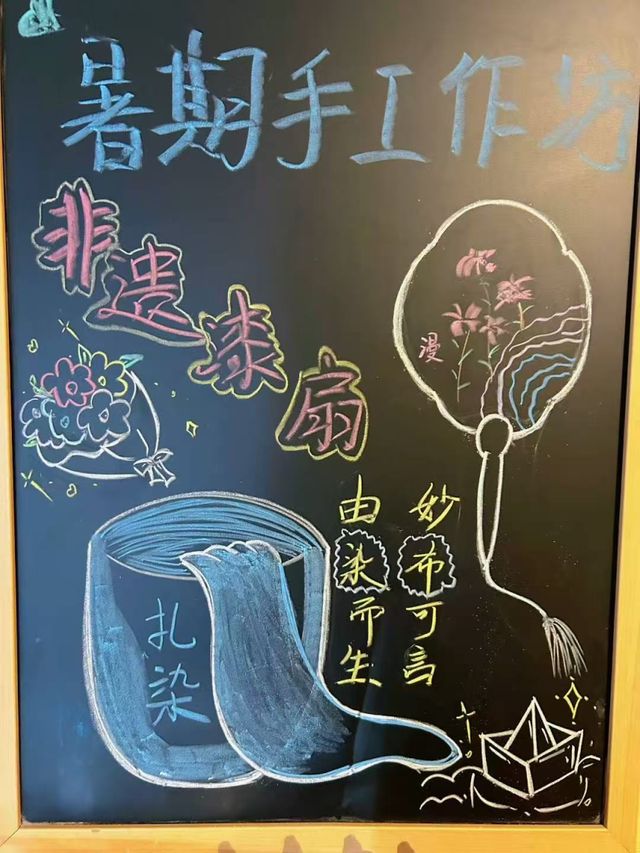 暑期手工作坊
非遗漆扇
漫
妙布可言
由染而生
扎染